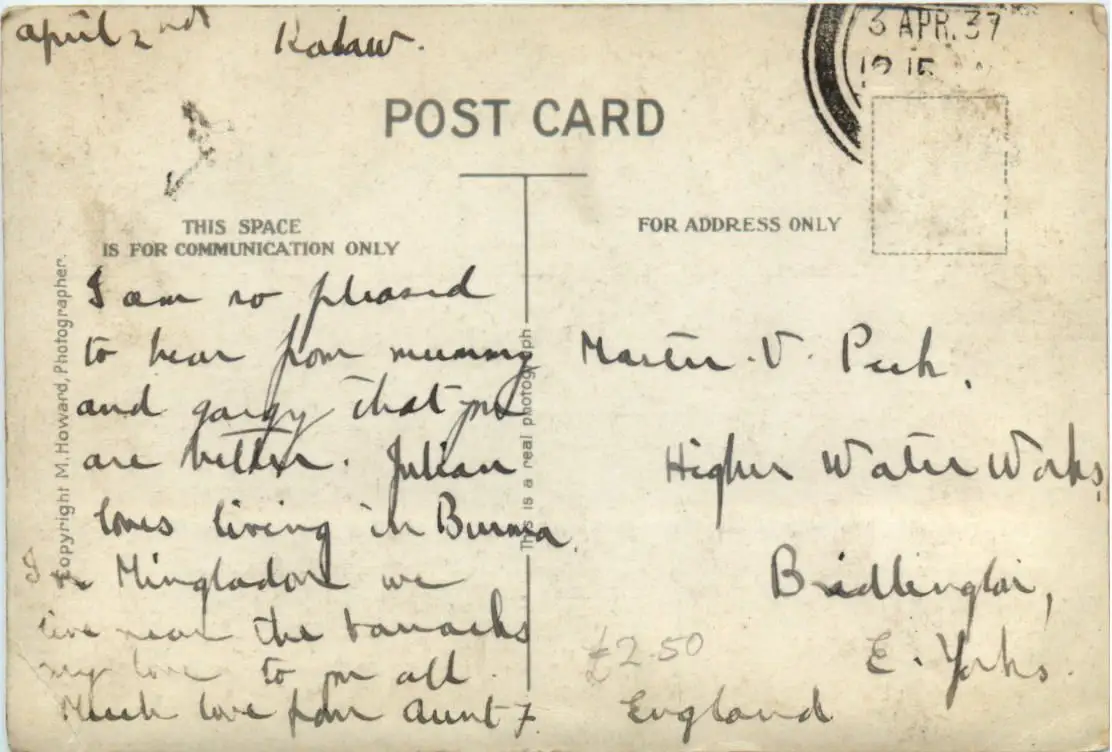 april 2nd Kalaw.
3 APR. 37
12 15
POST CARD
THIS SPACE
IS FOR COMMUNICATION ONLY
FOR ADDRESS ONLY
I am so pleased
to hear from mummy
and gangy that you
are better. Julian
loves living in Burma.
In Mingladon we
live near the barracks
my love to you all.
Much love from Aunt F.
Master. V. Peek.
Higher Water Works,
Bridlington,
E. Yorks.
England
£2.50
Copyright M. Howard, Photographer.
This is a real photograph